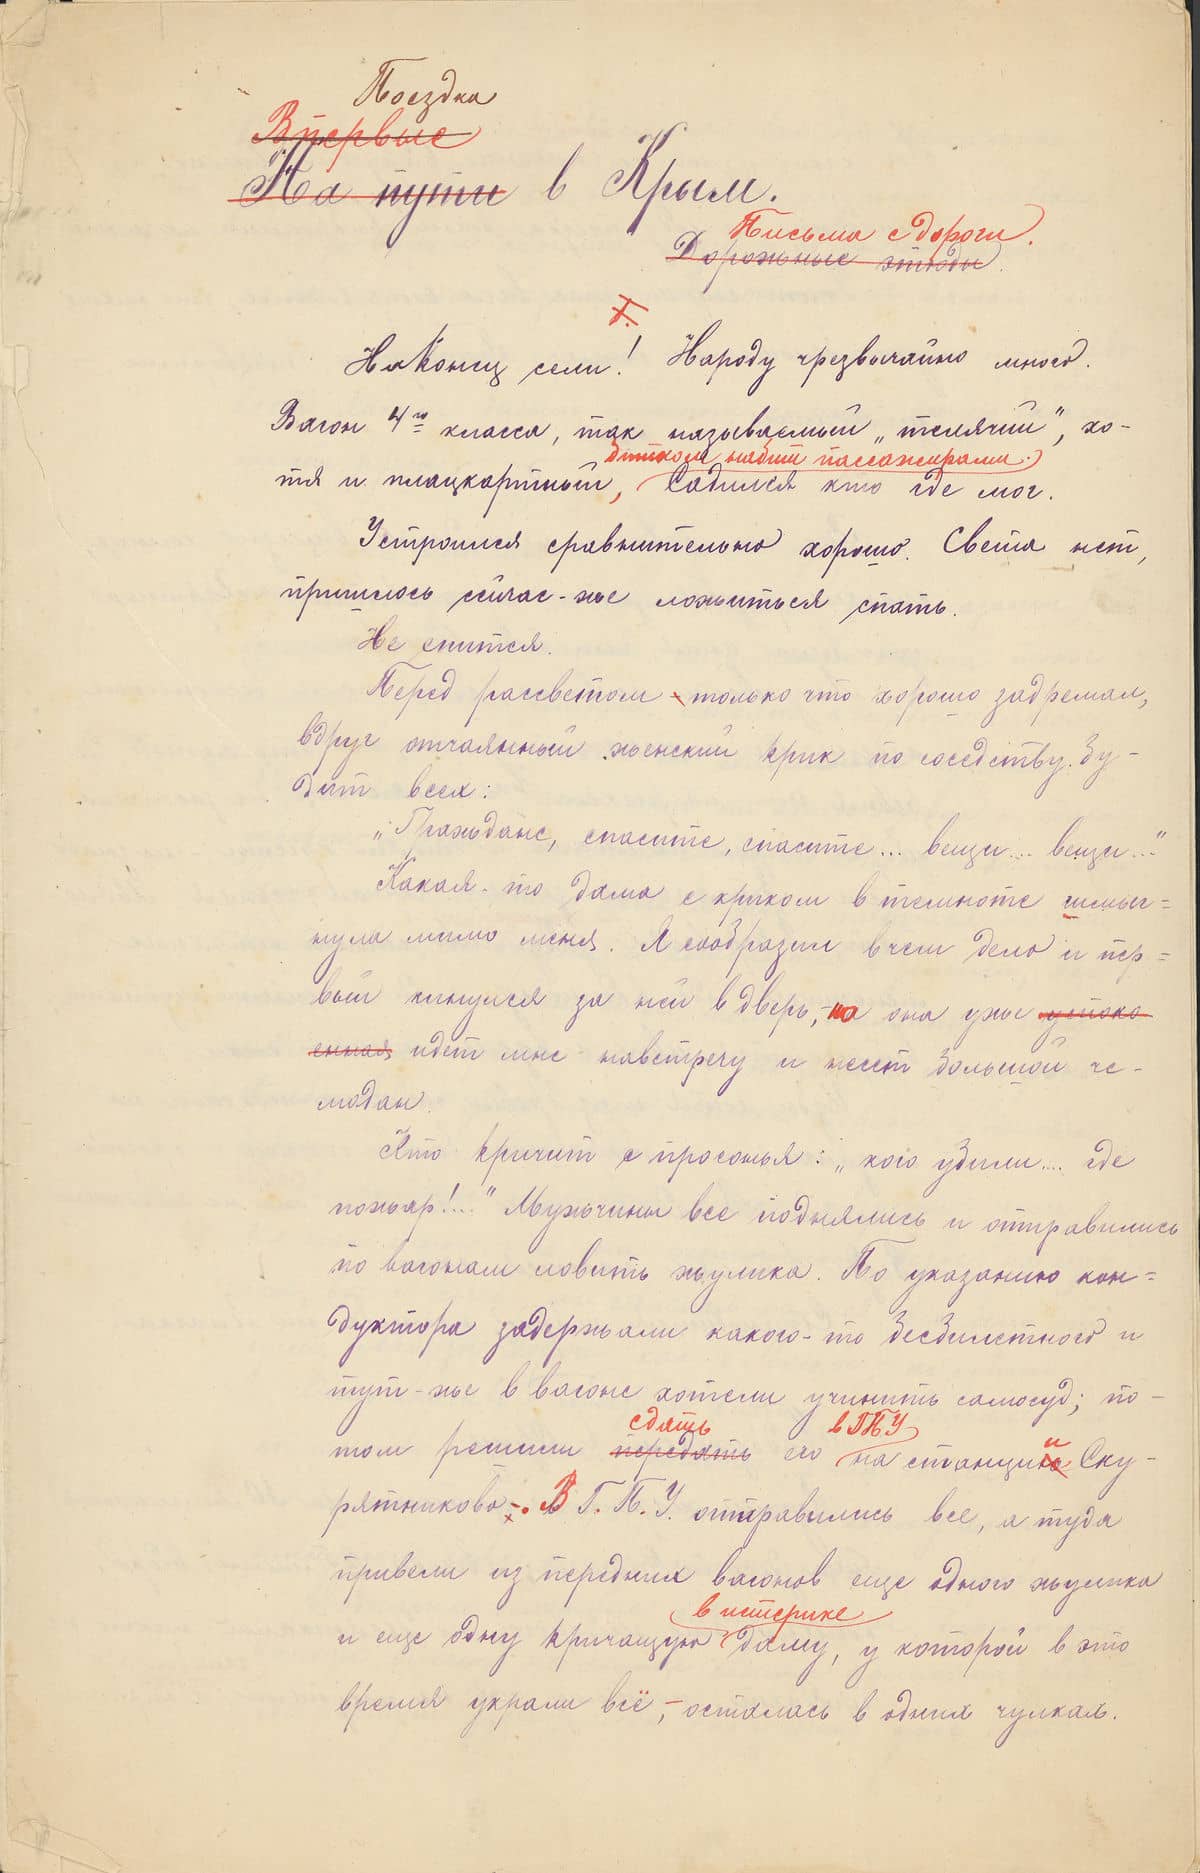 Поездка
Впервые
На пути в Крым.
Письма с дороги.
Дорожные этюды.
I.
Наконец сели! Народу чрезвычайно много.
Вагон 4го класса, так называемый „телячий", хо-
битком набит пассажирами.
тя и плацкартный, садился кто где мог.
Устроился сравнительно хорошо. Света нет,
пришлось сейчас-же ложиться спать.
Не спится.
Перед рассветом только что хорошо задремал,
вдруг отчаянный женский крик по соседству бу-
дит всех:
„Граждане, спасите, спасите... вещи... вещи..."
Какая-то дама с криком в темноте шмыг=
нула мимо меня. Я сообразил в чем дело и пер=
вый кинулся за ней в дверь, – но она уже успоко
енная идет мне навстречу и несет большой че-
модан.
Кто кричит с просонья: „кого убили... где
пожар!..." Мужчины все поднялись и отправились
по вагонам ловить жулика. По указанию кон=
дуктора задержали какого-то безбилетного и
тут-же в вагоне хотели учинить самосуд; по-
сдать в ГПУ
том решили передать его на станции Ску-
рятниково. В Г.П.У. отправились все, а туда
привели из передних вагонов еще одного жулика
в истерике
и еще одну кричащую даму, у которой в это
время украли всё, – осталась в одних чулках.